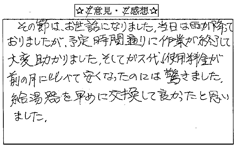 ☆ご意見・ご感想☆
その節は、お世話になりました。当日は雨が降って
おりましたが、予定時間通りに作業が終了して
大変助かりました。そしてガス代(使用料金)が
前の月に比べて安くなったのには驚きました。
給湯器を早めに交換して良かったと思い
ました。